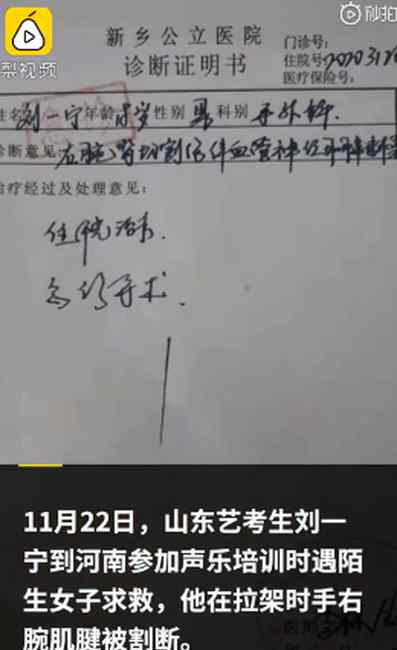 梨视频
秒拍
新乡公立医院
诊断证明书
门诊号:
住院号:2020318
医疗保险号:
姓名 刘一宁 年龄 18岁 性别 男 科别 手外科.
诊断意见 右腕部切割伤伴血管神经
治疗经过及处理意见:
住院治疗.
急行手术.
11月22日，山东艺考生刘一
宁到河南参加声乐培训时遇陌
生女子求救，他在拉架时手右
腕肌腱被割断。